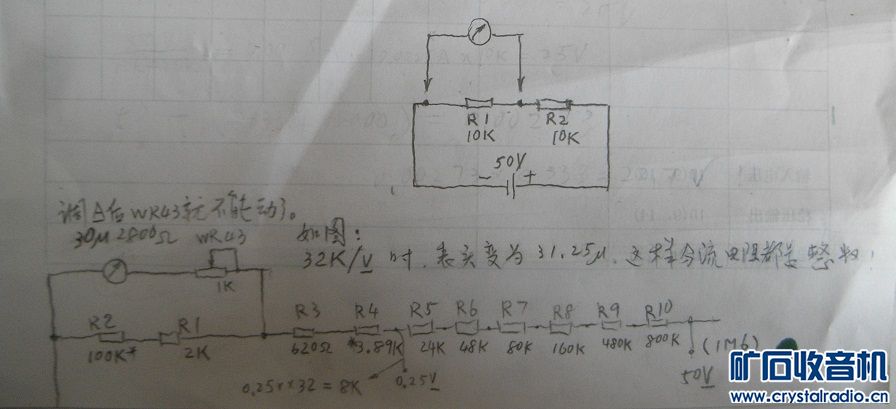 R1
R2
10K
10K
50V
- +
调A后WR43就不能动了。
30μ 2800Ω WR43
如图:
32K/V时,表头变为31.25μ,这样分流电阻都是整数!
1K
R2
R1
R3
R4
R5
R6
R7
R8
R9
R10
100K*
2K
620Ω
*3.89K
24K
48K
80K
160K
480K
800K
(1M6)
0.25V×32=8K
0.25V
50V
矿石收音机
www.crystalradio.cn